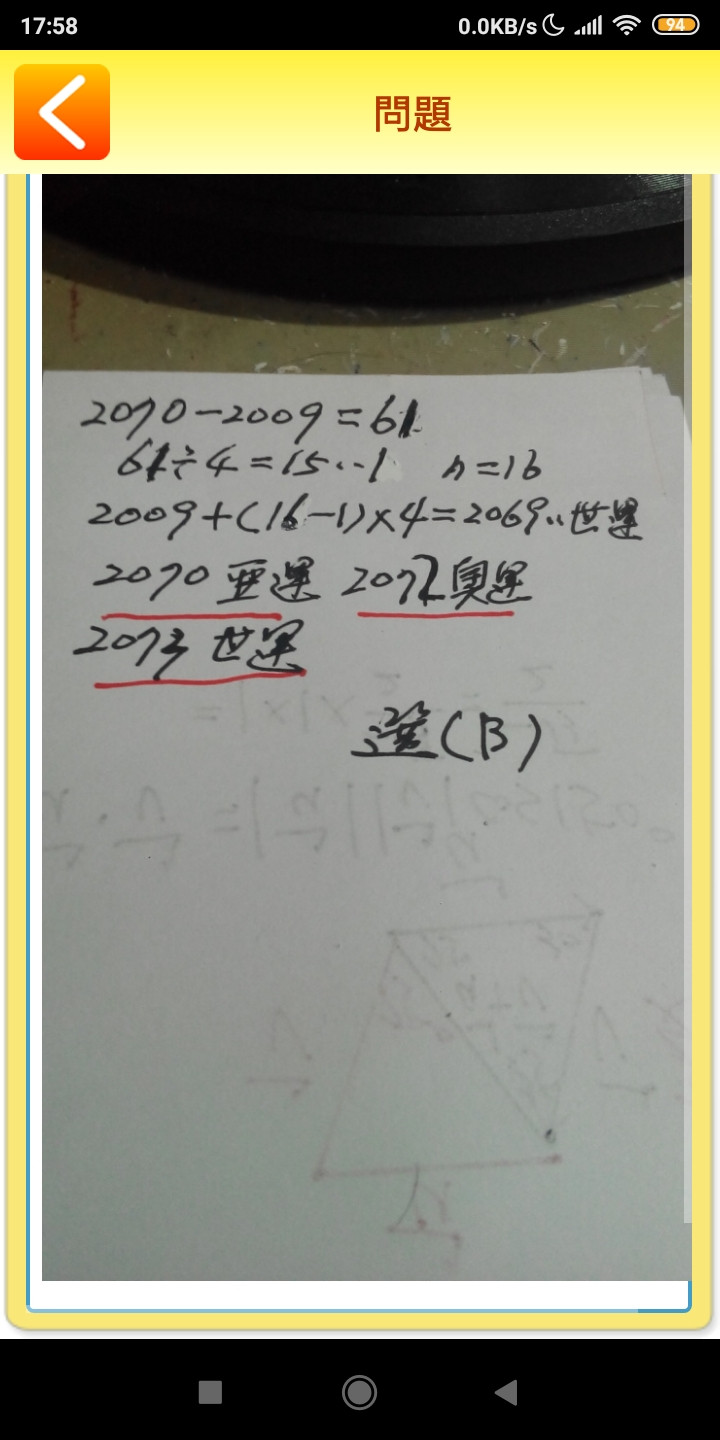 17:58
0.0KB/s
94
問題
2070-2009=61
61÷4=15...1 n=16
2009+(16-1)×4=2069...世運
2070 亞運 2072奧運
2073 世運
選(B)